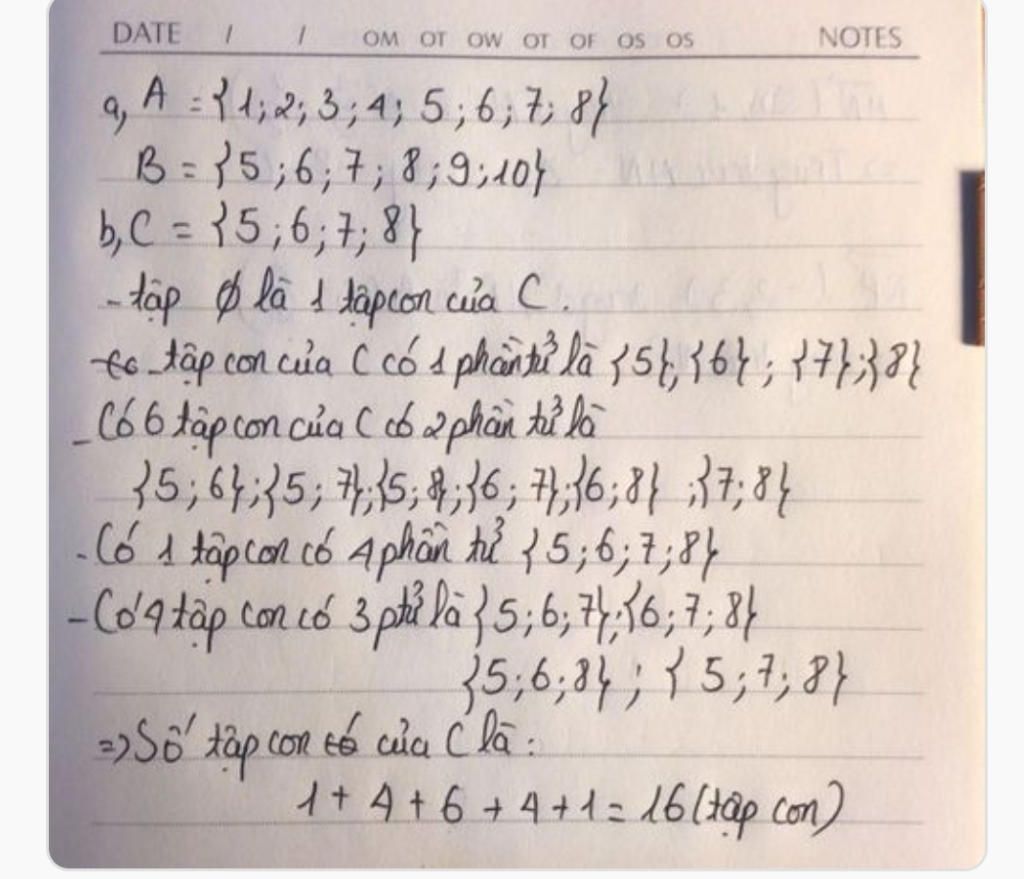 DATE / / OM OT OW OT OF OS OS NOTES
a, A = {1; 2; 3; 4; 5; 6; 7; 8}
B = {5; 6; 7; 8; 9; 10}
b, C = {5; 6; 7; 8}
- tập ∅ là 1 tập con của C.
- tập con của C có 1 phần tử là {5}; {6}; {7}; {8}
- Có 6 tập con của C có 2 phần tử là
{5; 6}; {5; 7}; {5; 8}; {6; 7}; {6; 8}; {7; 8}
- Có 1 tập con có 4 phần tử {5; 6; 7; 8}
- Có 4 tập con có 3 ptử là {5; 6; 7}; {6; 7; 8}
{5; 6; 8}; {5; 7; 8}
=> Số tập con của C là:
1 + 4 + 6 + 4 + 1 = 16 (tập con)